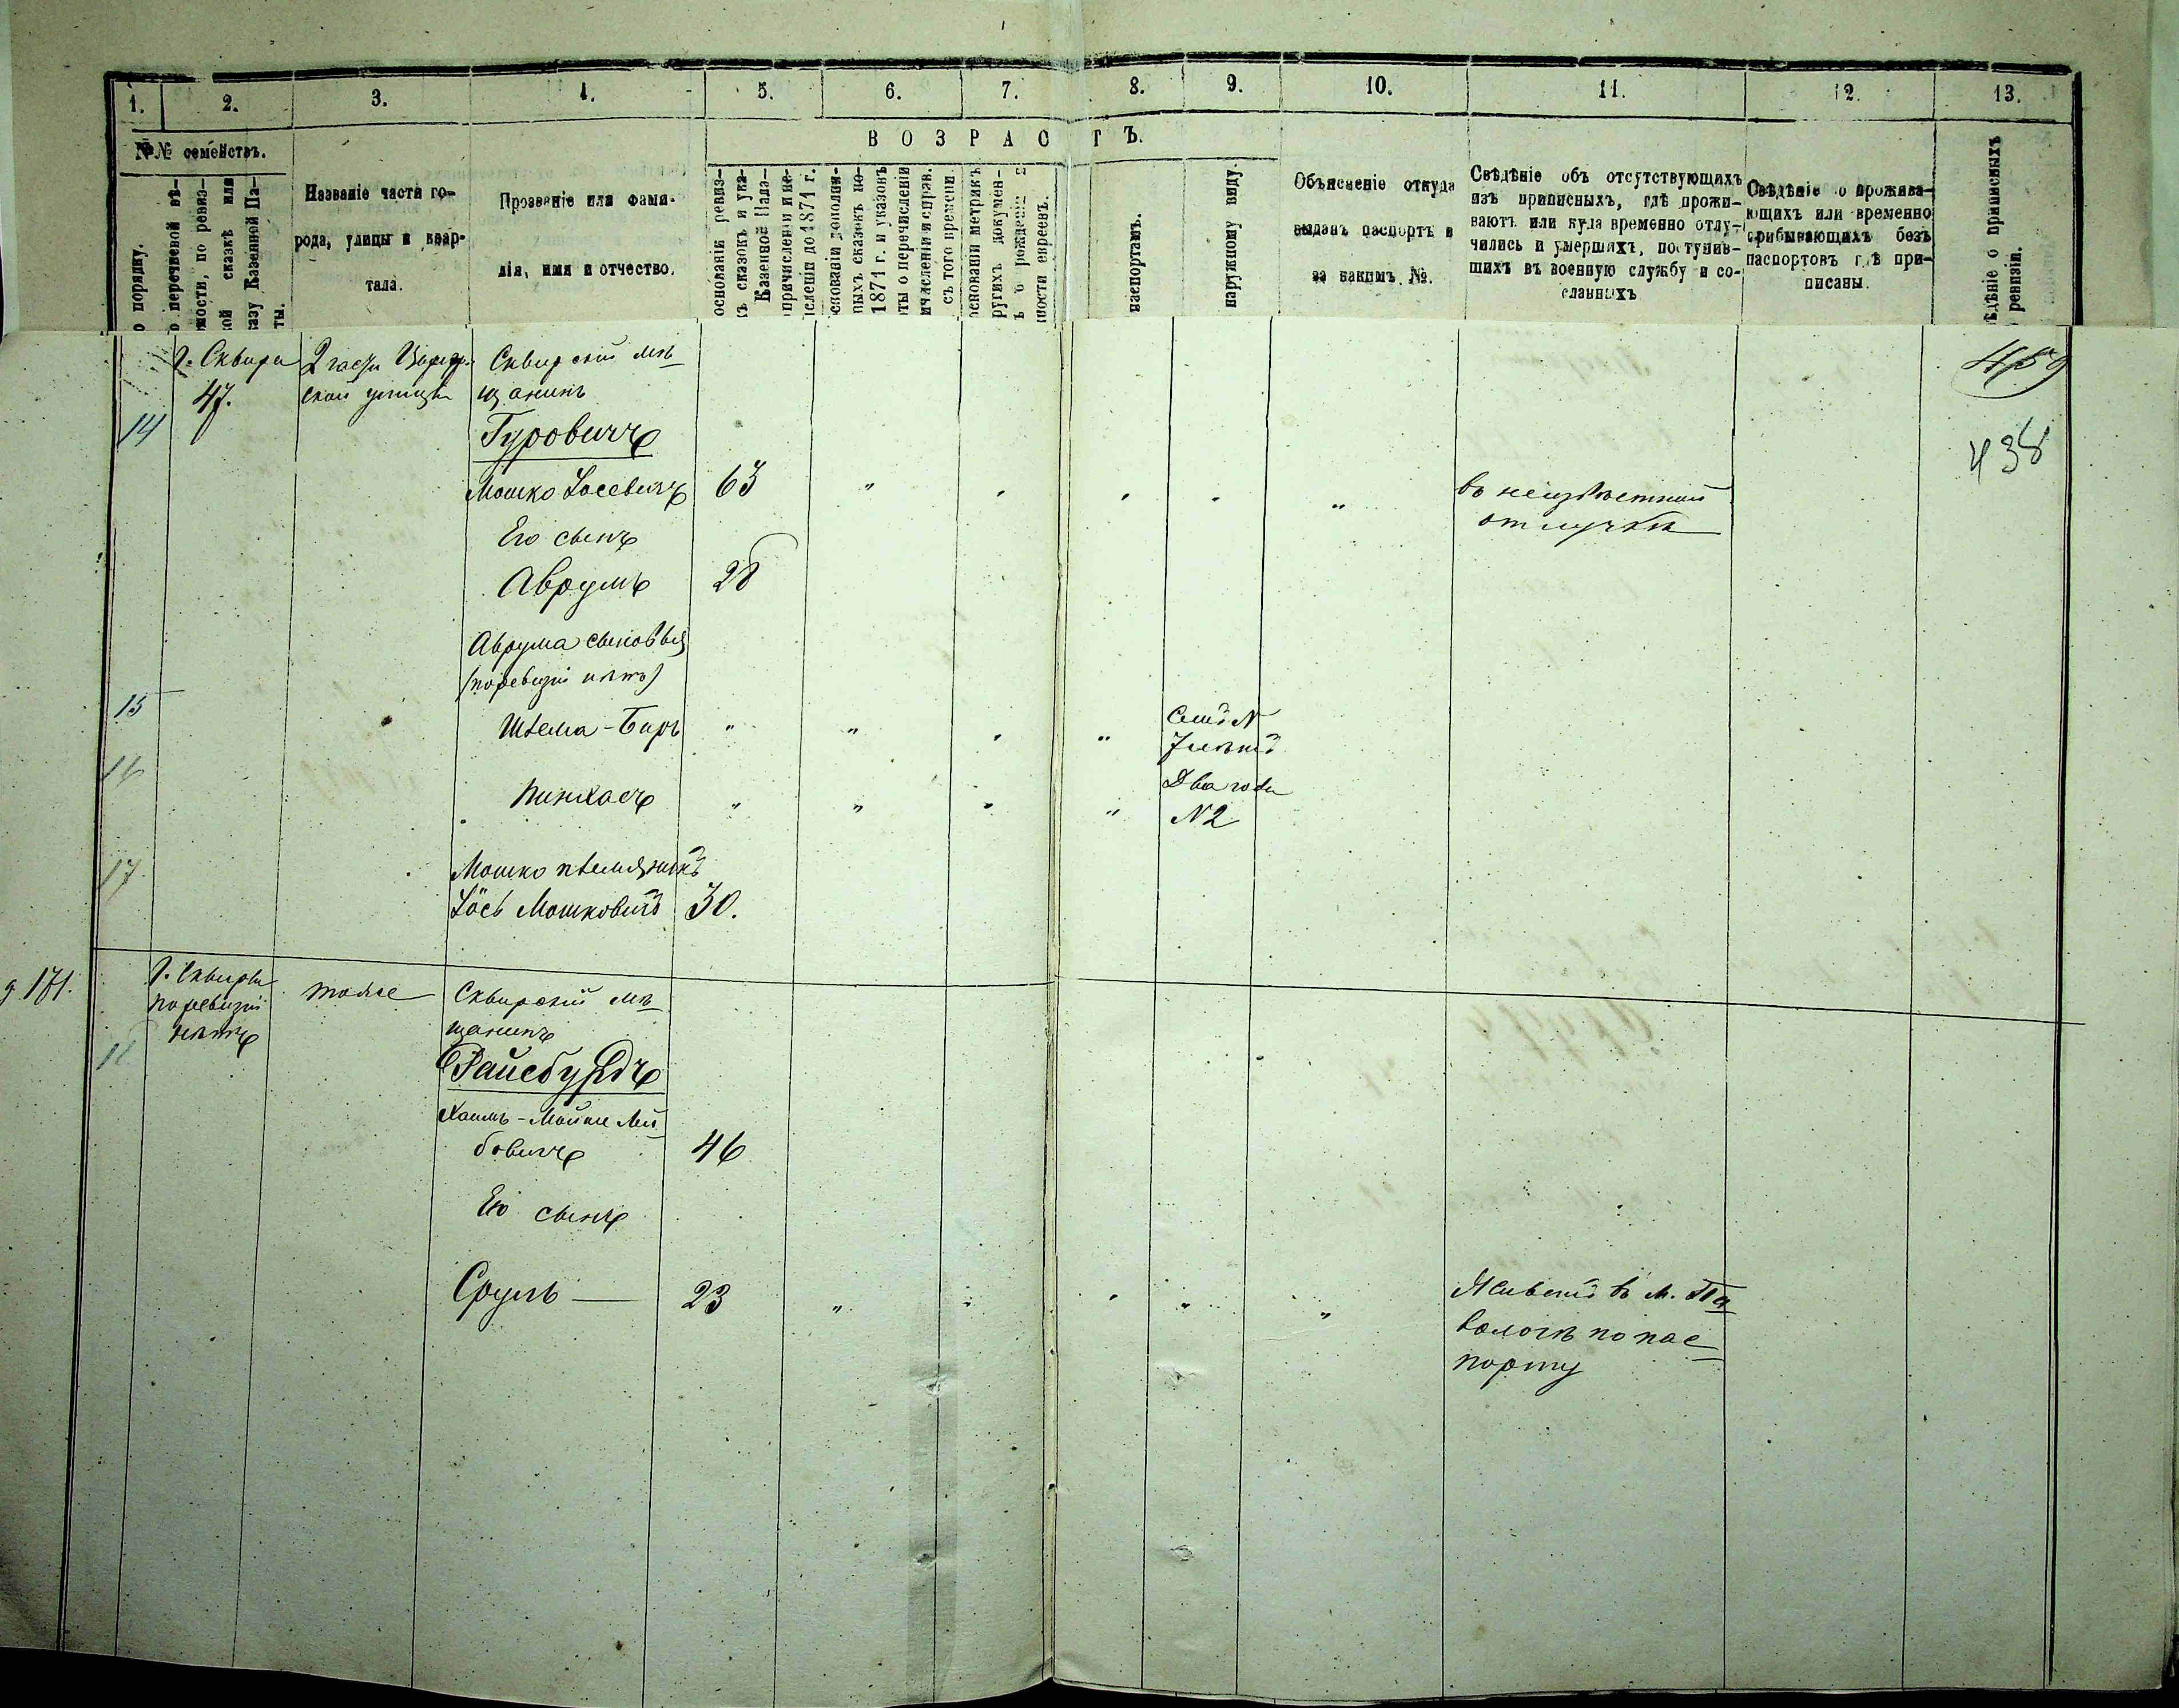 1. 2. 3. 4. 5. 6. 7. 8. 9. 10. 11. 12. 13.
№№ семействъ.
ВОЗРАСТЪ.
о порядку.
о перечневой вѣ-
мости, по ревиз-
ой сказкѣ или
казу Казенной Па-
ты.
Названіе части го-
рода, улицы и квар-
тала.
Прозваніе или фами-
лія, имя и отчество.
основаніи ревиз-
хъ сказокъ и ука-
Казенной Пала-
причисленіи и ис-
численіи до 1871 г.
основаніи дополни-
ныхъ сказокъ по-
1871 г. и указовъ
ты о перечисленіи
ичисленіи и справ.
съ того времени.
основаніи метрикъ
ругихъ докумен-
ъ о рожденіи
ности евреевъ.
паспортамъ.
наружному виду.
Объясненіе откуда
выданъ паспортъ и
за какимъ №.
Свѣдѣніе объ отсутствующихъ
изъ приписныхъ, гдѣ прожи-
ваютъ или куда временно отлу-
чились и умершихъ, поступив-
шихъ въ военную службу и со-
сланныхъ
Свѣдѣніе о прожива-
ющихъ или временно
прибывающихъ безъ
паспортовъ гдѣ при-
писаны.
ѣдѣніе о приписныхъ
ревизіи.
г. Сквира
47.
14
2 части
ской улицы
Сквирскій мѣ-
щанинъ
Гуровичъ
459
438
Мошко Іосевичъ 63 " " " " "
въ неизвѣстной
отлучкѣ
Его сынъ
Аврумъ 28
Аврума сыновья
(по ревизіи нѣтъ)
15
Шлема-Беръ " " " "
Семи №
7 лѣтъ
16
Пинхасъ " " " "
Два года
№ 2
17.
Мошко племянникъ
Іось Мошковичъ 30.
171.
г. Сквиры
по ревизіи
нѣтъ
тоже
Сквирскій мѣ-
щанинъ
18
Райсбурдъ
Хаимъ-Мойше Лей-
бовичъ 46
Его сынъ
Сруль — 23 " " " " "
Живетъ въ м. Па-
волочѣ по пас-
порту